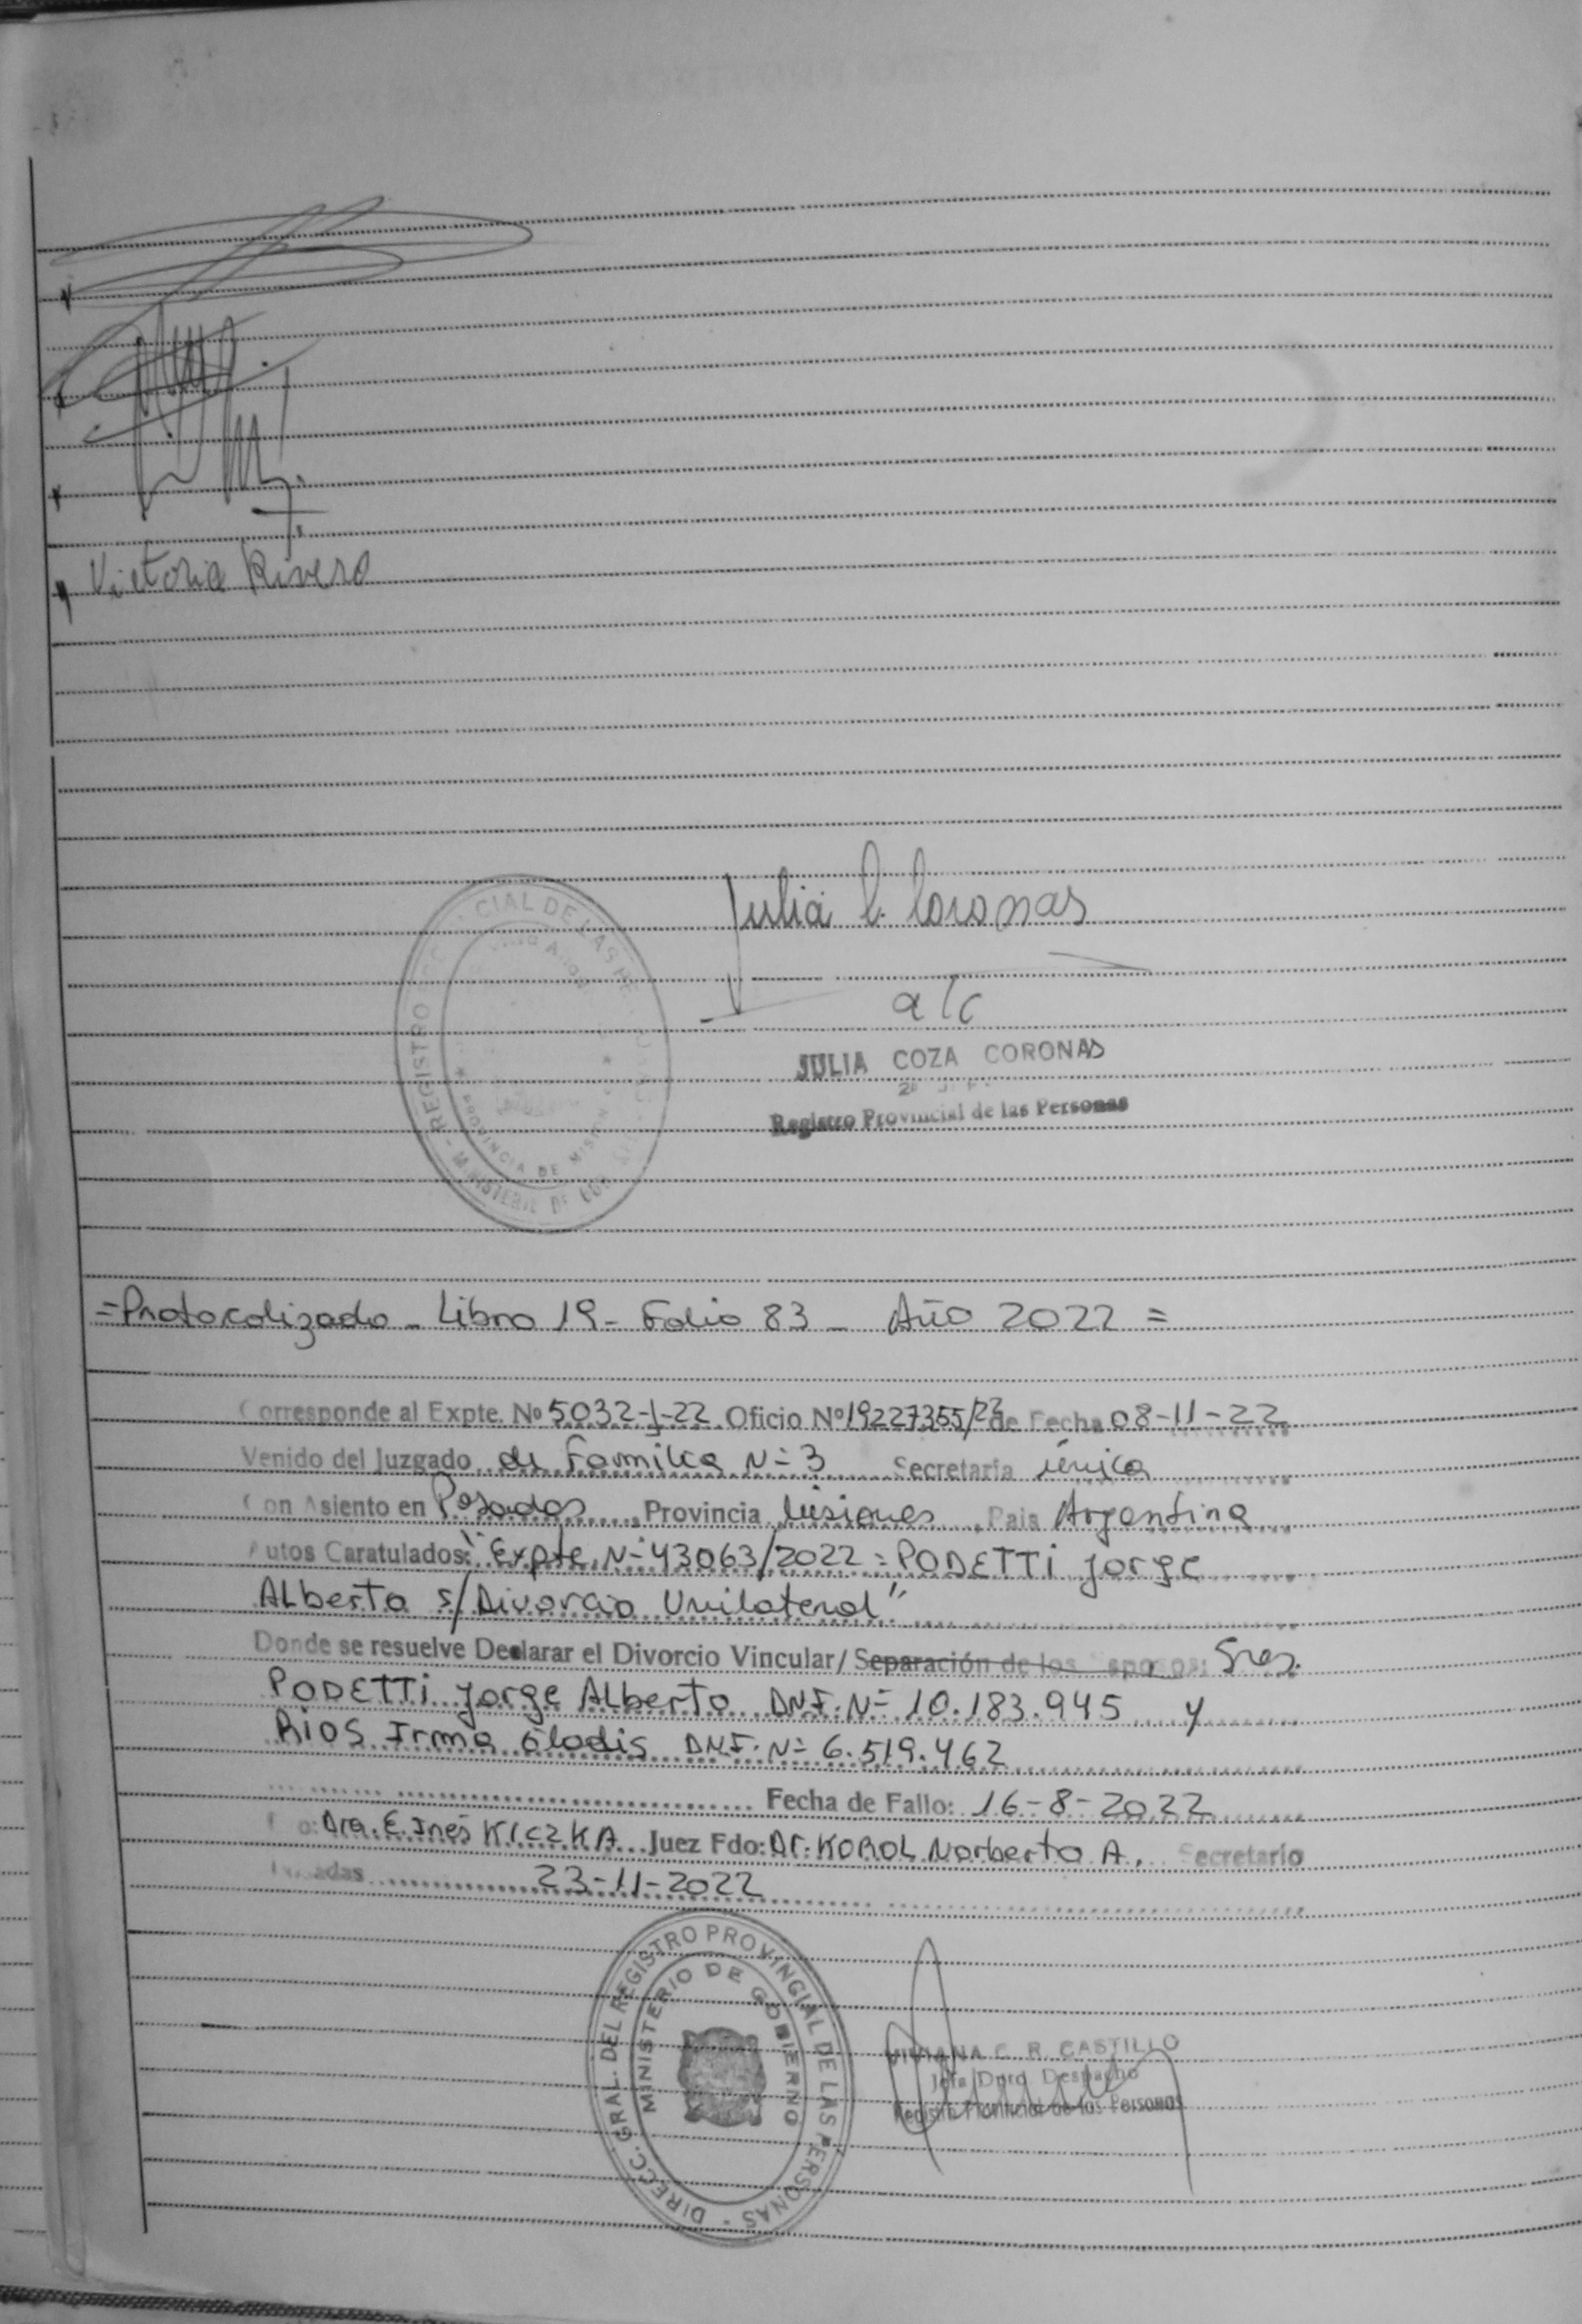 Victoria Rivero
Julia C. Coronas
a/c
JULIA COZA CORONAS
Registro Provincial de las Personas
REGISTRO CIAL DE LAS
PROVINCIA DE MISIONES
MINISTERIO DE
=Protocolizado - Libro 19 - Folio 83 - Año 2022 =
Corresponde al Expte. Nº 5032-J-22 Oficio Nº 19227355/22 de Fecha 08-11-22
Venido del Juzgado de Familia Nº 3 Secretaría única
Con Asiento en Posadas, Provincia Misiones, País Argentina
Autos Caratulados: "Expte. Nº 43063/2022 = PODETTI Jorge
Alberto s/Divorcio Unilateral"
Donde se resuelve Declarar el Divorcio Vincular/Separación de los Esposos: Sres.
PODETTI Jorge Alberto DNI. Nº 10.183.945 y
RIOS Irma Gladis DNI. Nº 6.519.462
Fecha de Fallo: 16-8-2022
Fdo: Dra. E. Inés KICZKA Juez Fdo: Dr. KOROL Norberto A. Secretario
Posadas 23-11-2022
DIRECC. GRAL. DEL REGISTRO PROVINCIAL DE LAS PERSONAS -
MINISTERIO DE GOBIERNO
VIVIANA C. R. CASTILLO
Jefa Dpto Despacho
Registro Provincial de las Personas